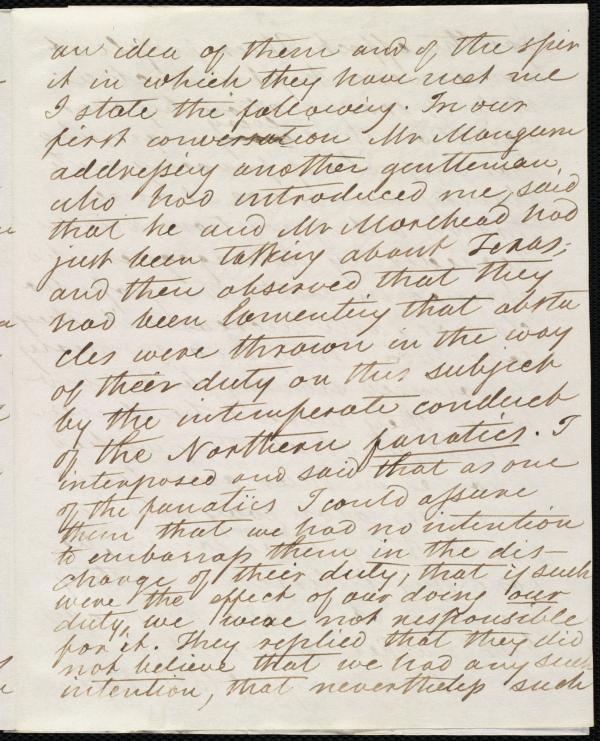 an idea of them and of the spir
it in which they have met me
I state the following. In our
first conversation Mr Mangum
addressing another gentleman,
who had introduced me, said
that he and Mr Morehead had
just been talking about Texas;
and then observed that they
had been lamenting that obsta
cles were thrown in the way
of their duty on this subject
by the intemperate conduct
of the Northern fanatics. I
interposed and said that as one
of the fanatics I could assure
them that we had no intention
to embarrass them in the dis-
charge of their duty, that if such
were the effect of our doing our
duty, we were not responsible
for it. They replied that they did
not believe that we had any such
intention, that nevertheless such